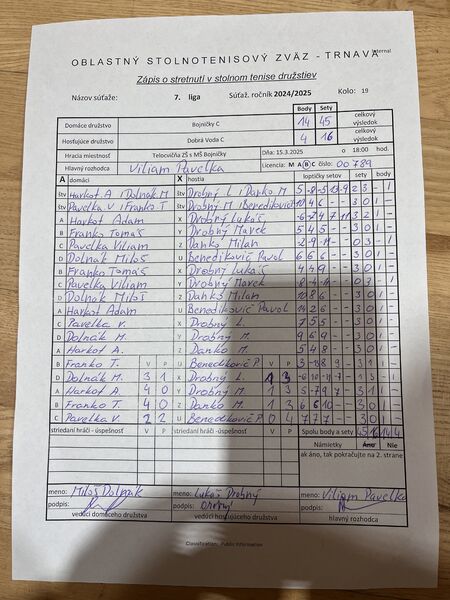 Internal
OBLASTNÝ STOLNOTENISOVÝ ZVÄZ - TRNAVA
Zápis o stretnutí v stolnom tenise družstiev
Názov súťaže: 7. liga Súťaž. ročník 2024/2025 Kolo: 19
Body Sety
Domáce družstvo Bojničky C 14 45 celkový výsledok
Hosťujúce družstvo Dobrá Voda C 4 16 celkový výsledok
Hracia miestnosť Telocvičňa ZŠ s MŠ Bojničky Dňa 15.3.2025 o 18:00 hod.
Hlavný rozhodca Viliam Pavelka Licencia: M A B C číslo: 00789
A domáci X hostia loptičky setov sety body
štv Harkot A i Dolnák M štv Drobný L i Danko M 2 3 - 1
štv Pavelka V i Franko T štv Drobný M i Benedikovič P
A Harkot Adam X Drobný Lukáš 3 2 1 -
B Franko Tomáš Y Drobný Marek 5 4 5 - - 3 0 1 -
C Pavelka Viliam Z Danko Milan 0 3 - 1
D Dolnák Miloš U Benedikovič Pavol 6 6 6 - - 3 0 1 -
B Franko Tomáš X Drobný Lukáš 4 4 9 - - 3 0 1 -
C Pavelka Viliam Y Drobný Marek 0 3 - 1
D Dolnák Miloš Z Danko Milan 10 8 6 - - 3 0 1 -
A Harkot Adam U Benedikovič Pavol 3 0 1 -
C Pavelka V. X Drobný L. 7 5 5 - - 3 0 1 -
D Dolnák M. Y Drobný M. 9 6 9 - - 3 0 1 -
A Harkot A. Z Danko M. 5 4 8 - - 3 0 1 -
B Franko T. V P U Benedikovič P. V P 3 1 1 -
D Dolnák M. 3 1 X Drobný L. 1 3 1 3 - 1
A Harkot A. 4 0 Y Drobný M. 1 3 3 1 1 -
B Franko T. 4 0 Z Danko M. 1 3 6 6 10 - - 3 0 1 -
C Pavelka V. 2 2 U Benedikovič P. 0 4 7 7 7 - - 3 0 1 -
striedaní hráči - úspešnosť V P striedaní hráči - úspešnosť V P Spolu body a sety 45 16 14 4
Námietky Áno Nie
ak áno, tak pokračujte na 2. strane
meno: Miloš Dolnák meno: Lukáš Drobný meno: Viliam Pavelka
podpis: podpis: Drobný podpis:
vedúci domáceho družstva vedúci hosťujúceho družstva hlavný rozhodca
Classification: Public Information